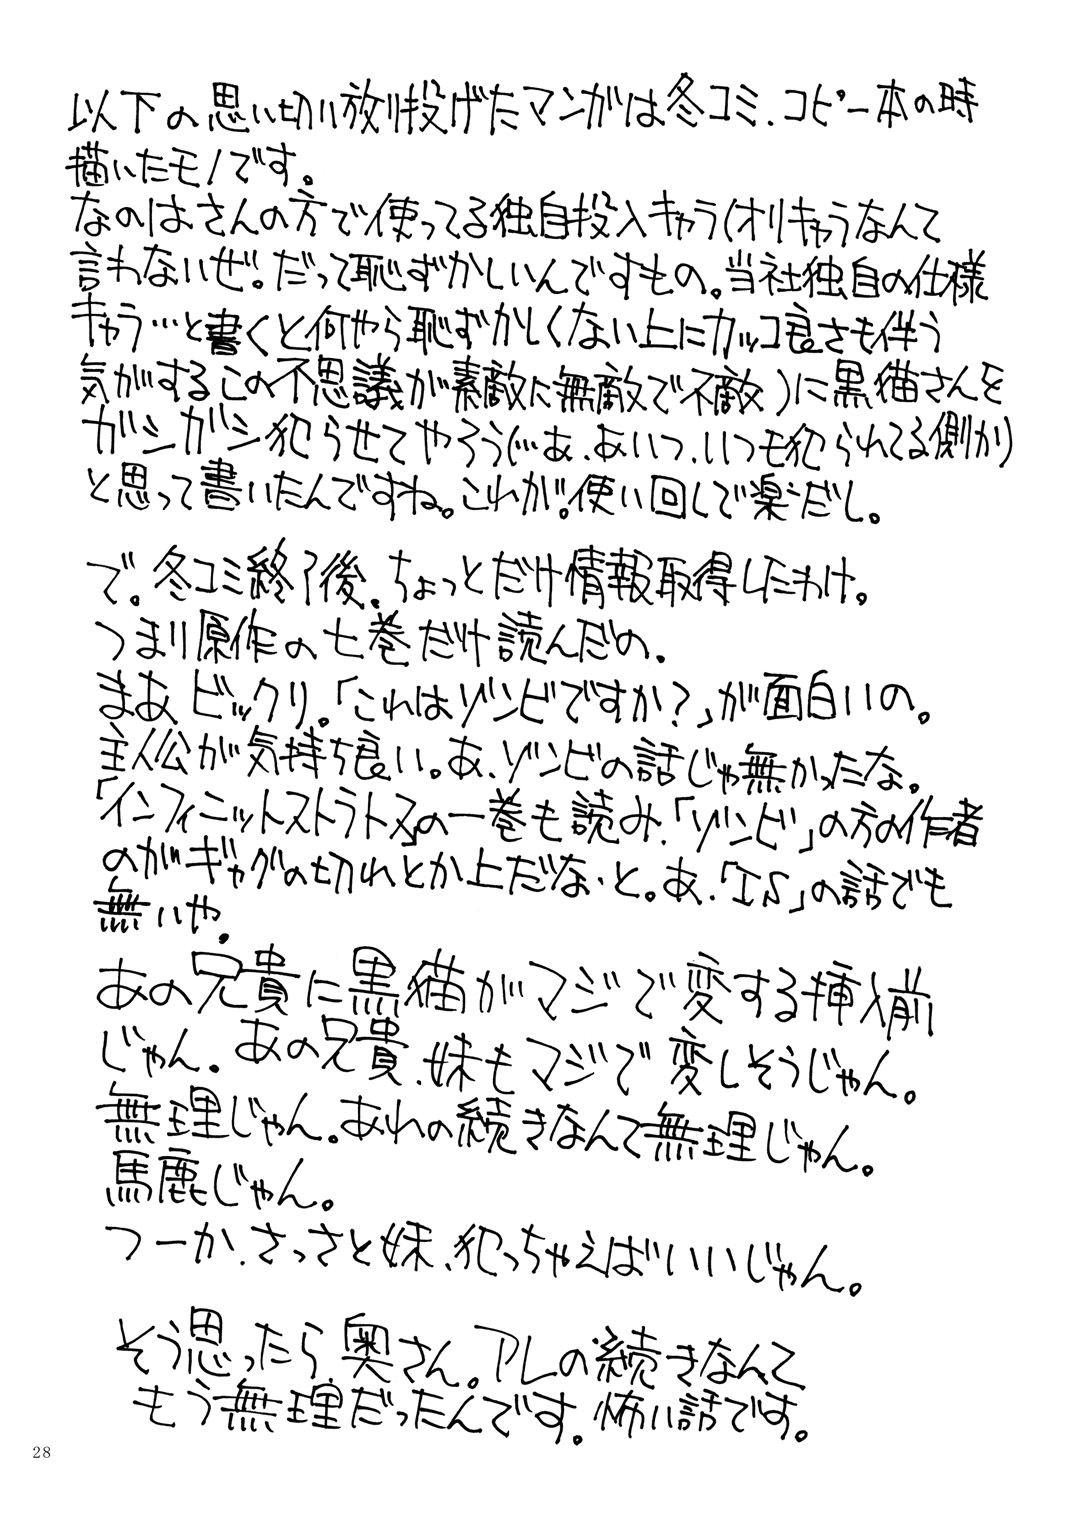 以下の思い切り放り投げたマンガは冬コミ、コピー本の時
描いたモノです。
なのはさんの方で使ってる独自投入キャラ(オリキャラなんて
言わないぜ。だって恥ずかしいんですもの。当社独自の仕様
キャラ…と書くと何やら恥ずかしくない上にカッコ良さも伴う
気がするこの不思議が素敵に無敵で不敵)に黒猫さんを
ガシガシ犯らせてやろう(…あ、あいつ、いつも犯られてる側か)
と思って書いたんですね。これが。使い回しで楽だし。
で。冬コミ終了後、ちょっとだけ情報取得したわけ。
つまり原作の七巻だけ読んだの。
まあ、ビックリ。「これはゾンビですか?」が面白いの。
主人公が気持ち良い。あ、ゾンビの話じゃ無かったな。
「インフィニットストラトス」の一巻も読み、「ゾンビ」の方の作者
のがギャグの切れとか上だな、と。あ、「IS」の話でも
無いや。
あの兄貴に黒猫がマジで変する挿入前
じゃん。あの兄貴、妹もマジで変しそうじゃん。
無理じゃん。あれの続きなんて無理じゃん。
馬鹿じゃん。
つーか、さっさと妹、犯っちゃえばいいじゃん。
そう思ったら奥さん。アレの続きなんて
もう無理だったんです。怖い話です。
28